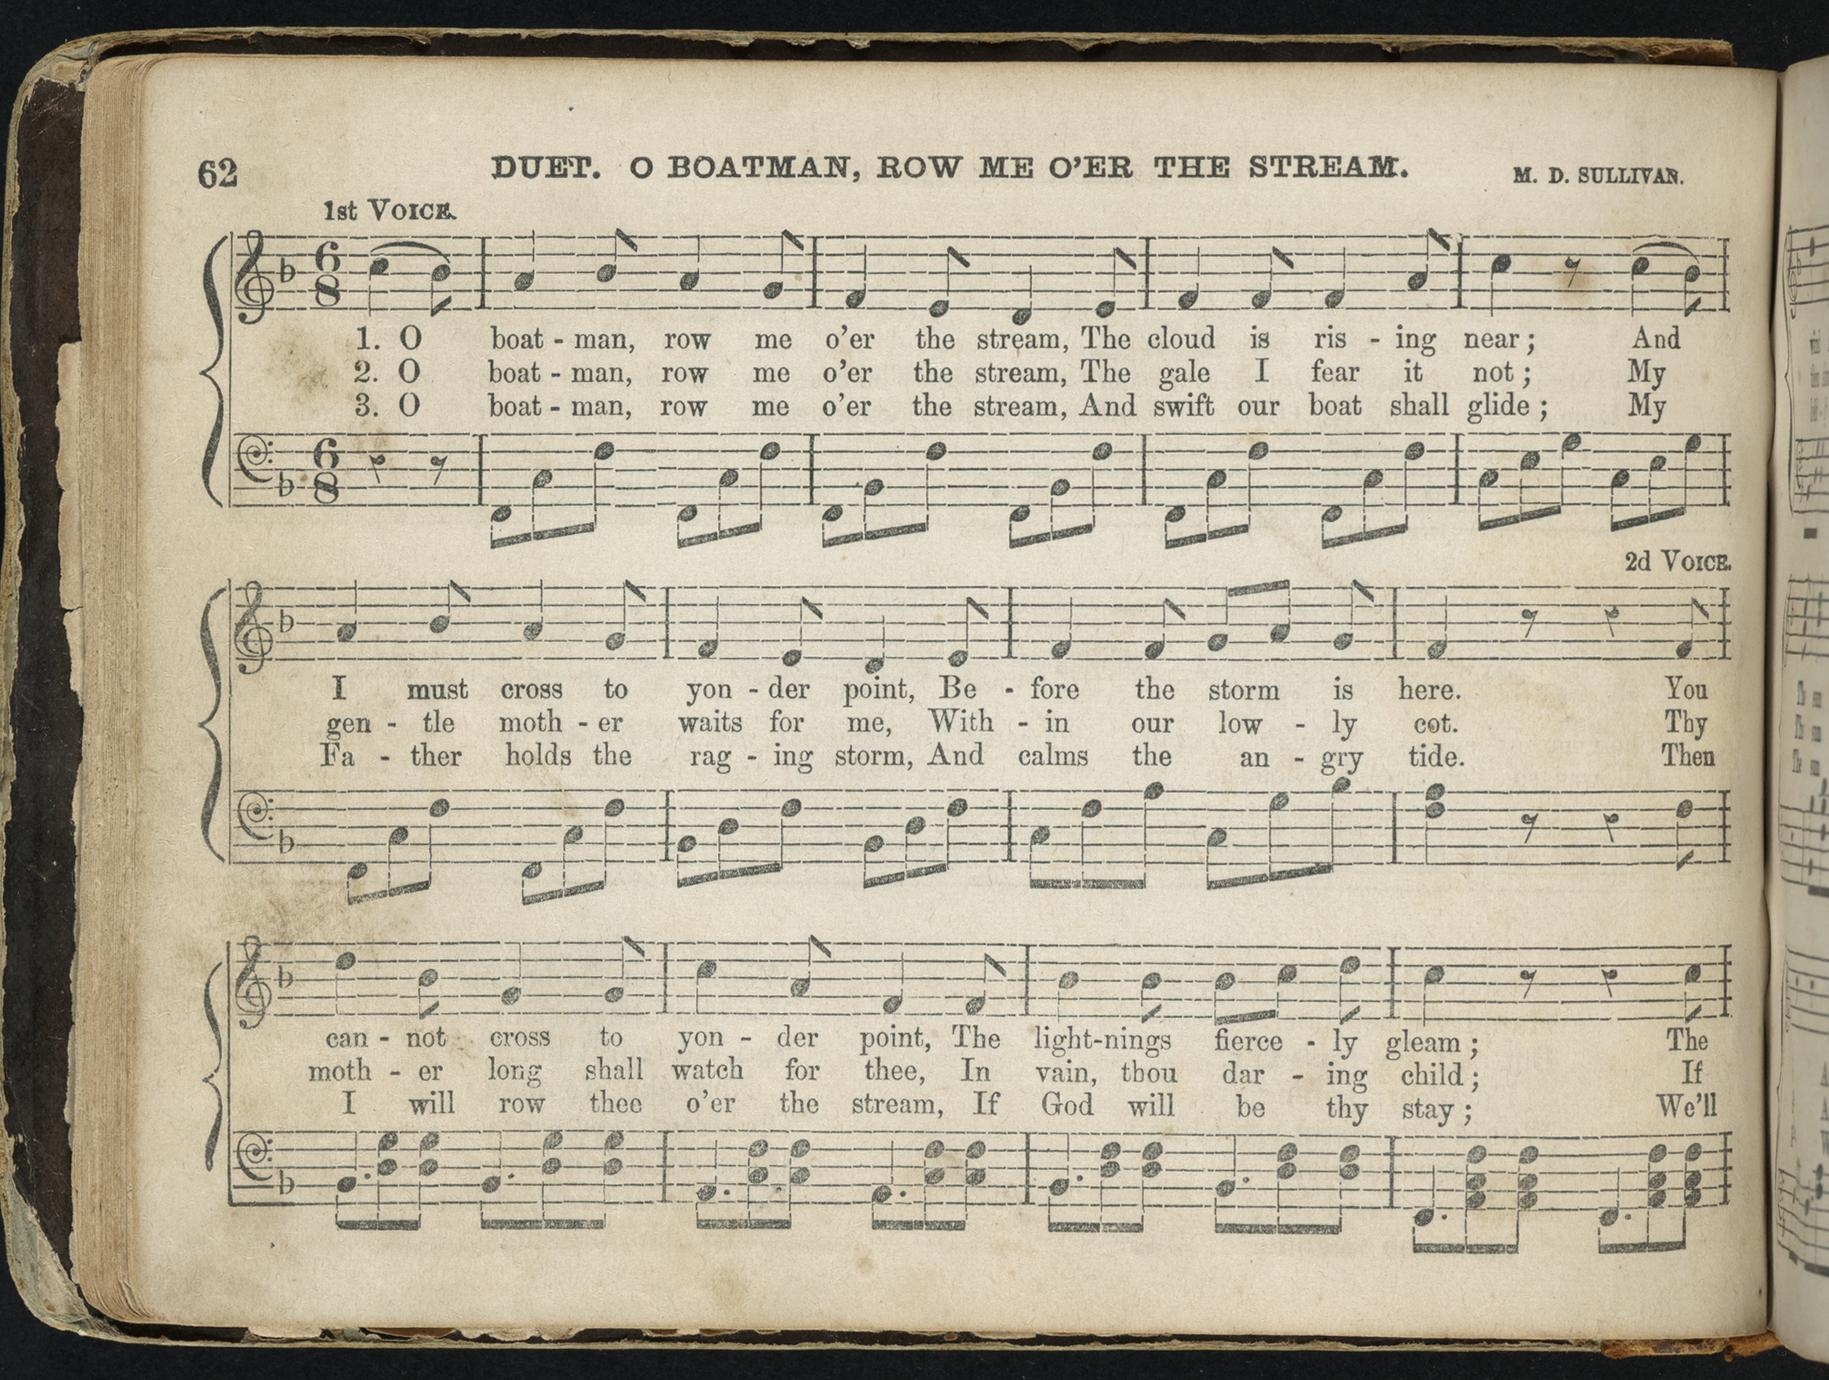 62
DUET. O BOATMAN, ROW ME O'ER THE STREAM.
M. D. SULLIVAN.
1st VOICE.
1. O boat - man, row me o'er the stream, The cloud is ris - ing near; And
2. O boat - man, row me o'er the stream, The gale I fear it not; My
3. O boat - man, row me o'er the stream, And swift our boat shall glide; My
2d VOICE.
I must cross to yon - der point, Be - fore the storm is here. You
gen - tle moth - er waits for me, With - in our low - ly cot. Thy
Fa - ther holds the rag - ing storm, And calms the an - gry tide. Then
can - not cross to yon - der point, The light-nings fierce - ly gleam; The
moth - er long shall watch for thee, In vain, thou dar - ing child; If
I will row thee o'er the stream, If God will be thy stay; We'll